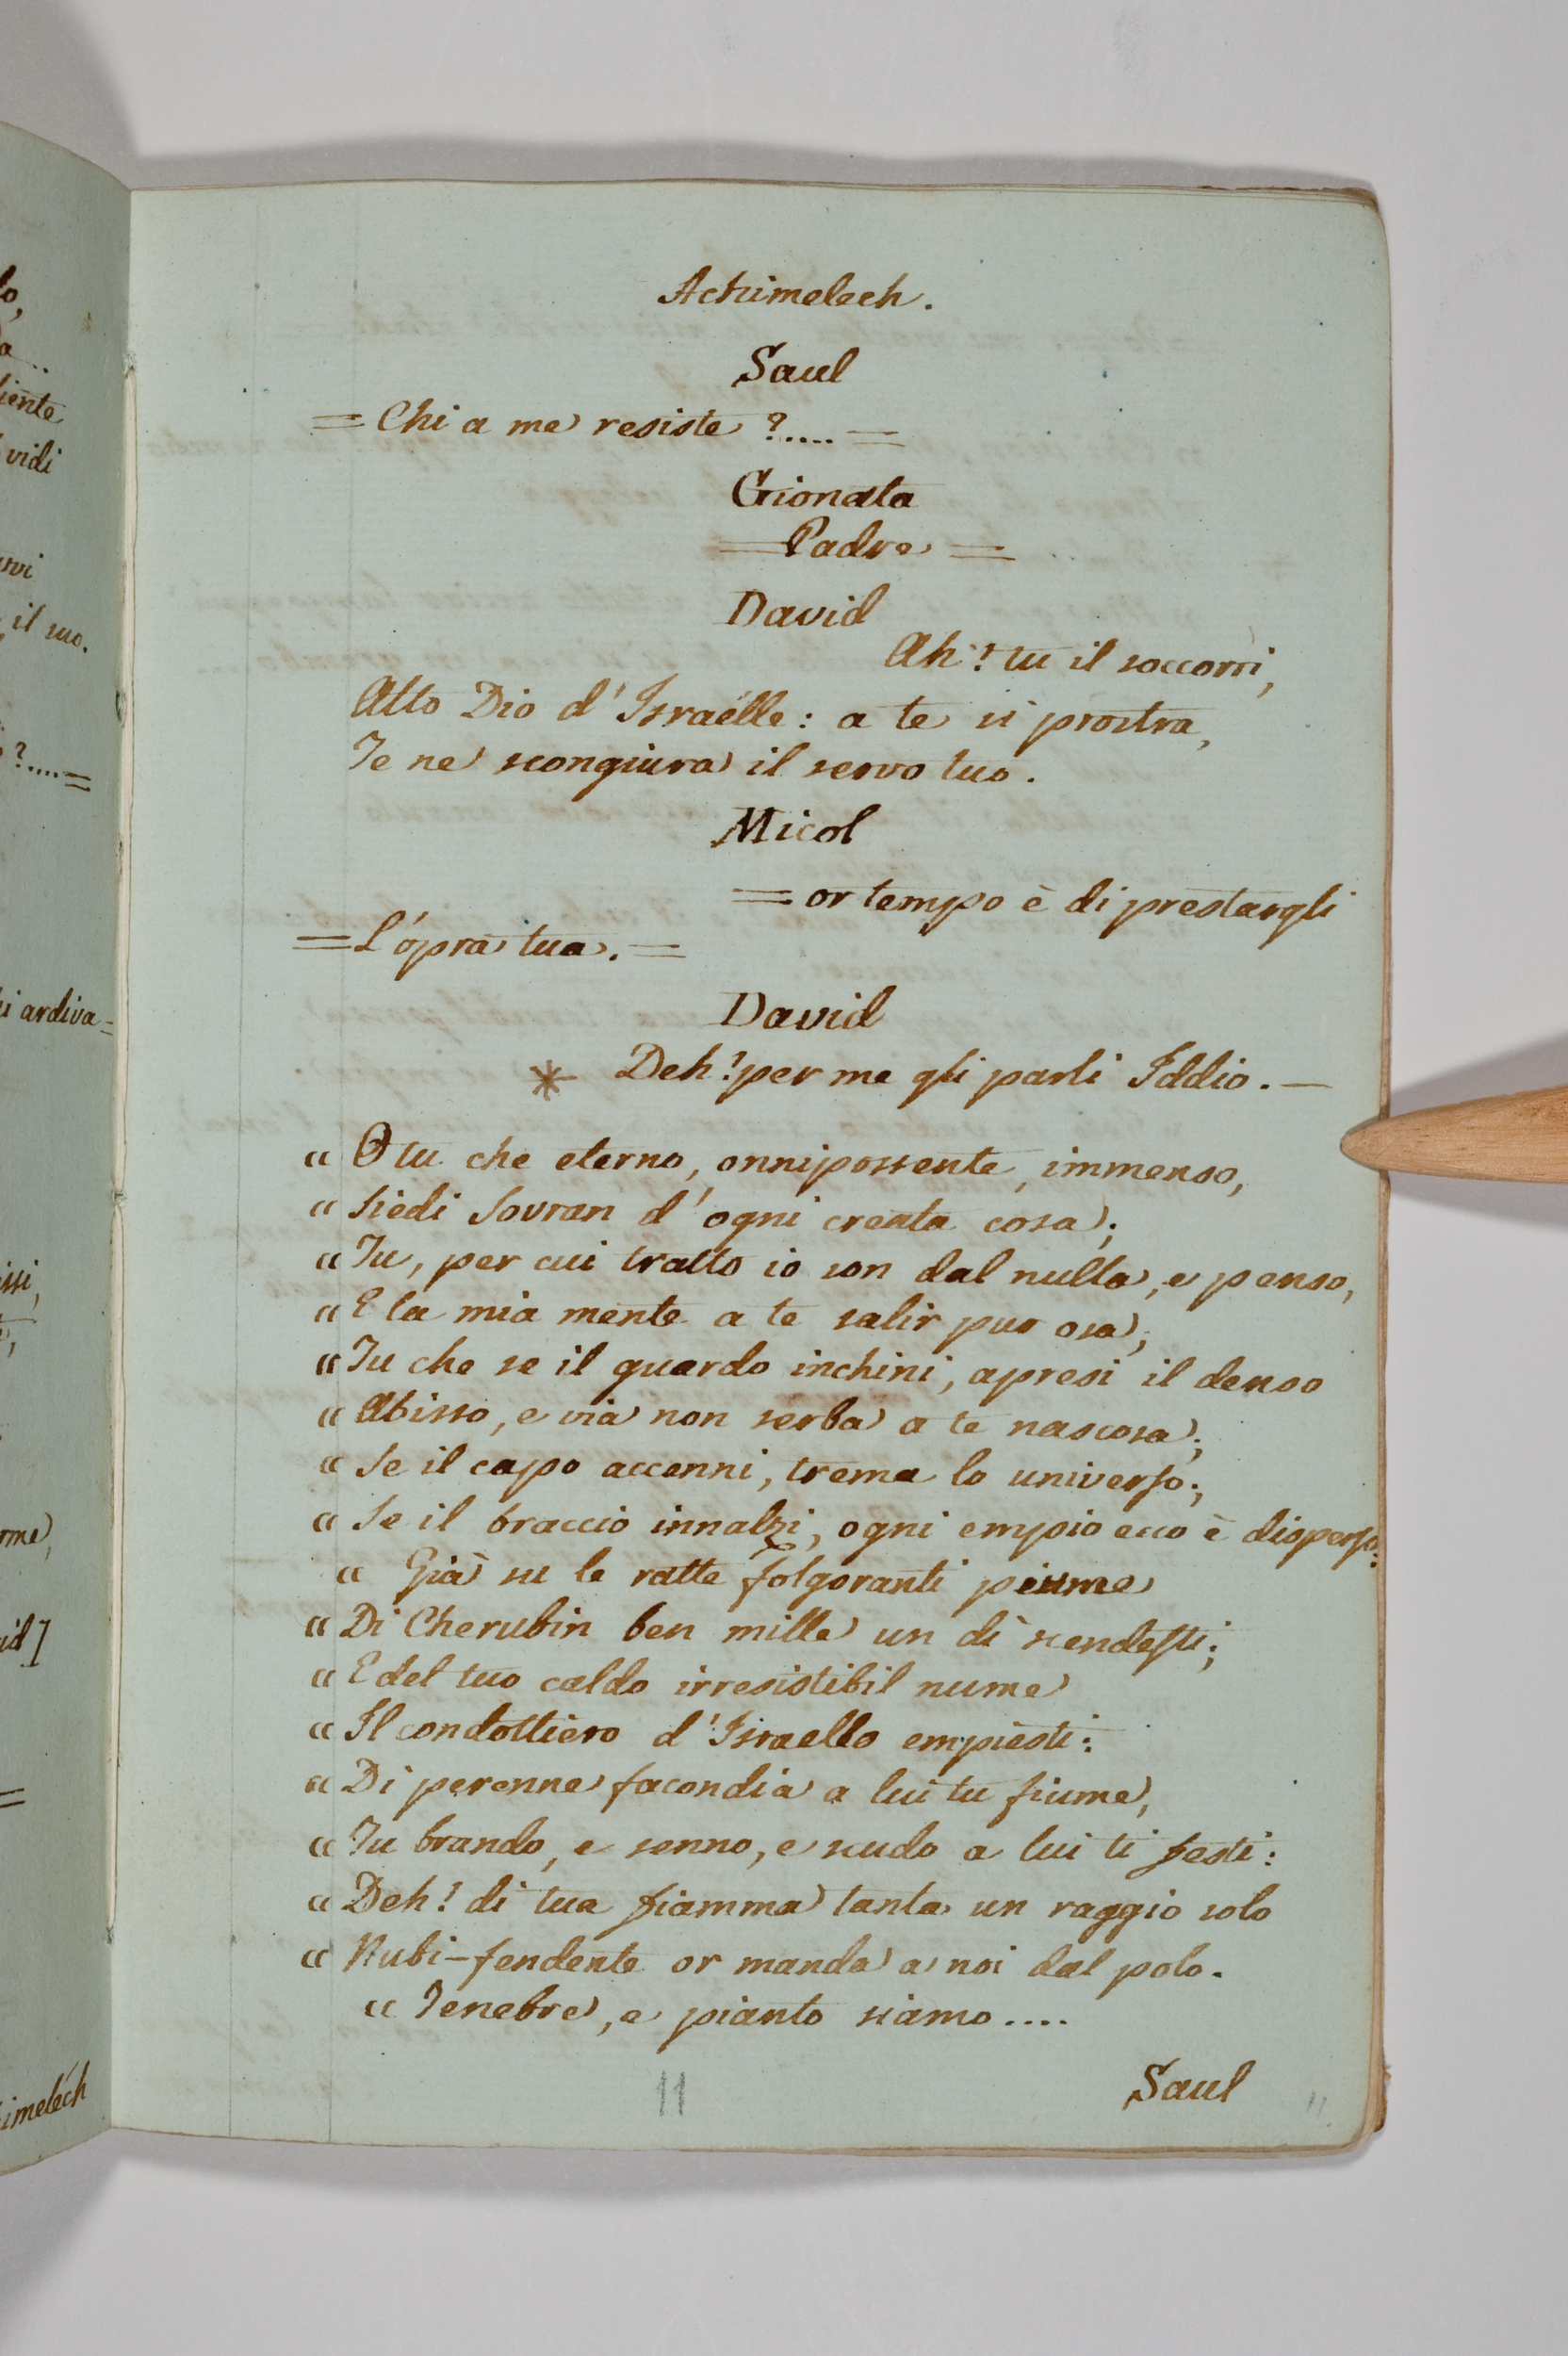 Achimelech.
Saul
= Chi a me resiste ?.... =
Gionata
= Padre =
David
Ah! tu il soccorri,
Alto Dio d'Israélle: a te si prostra,
Te ne scongiura il servo tuo.
Micol
= or tempo è di prestargli
= L'ópra tua. =
David
* Deh! per me gli parli Iddio. —
« O tu che eterno, onnipossente, immenso,
« Siedi Sovran d'ogni creata cosa;
« Tu, per cui tratto io son dal nulla, e penso,
« E la mia mente a te salir pur osa;
« Tu che se il guardo inchini, apresi il denso
« Abisso, e via non serba a te nascosa;
« Se il capo accenni, trema lo universo;
« Se il braccio innalzi, ogni empio ecco è disperso:
« Già su le ratte folgoranti piume
« Di Cherubin ben mille un dì scendesti;
« E del tuo caldo irresistibil nume
« Il condottiero d'Israello empiesti:
« Di perenne facondia a lui tu fiume,
« Tu brando, e senno, e scudo a lui ti festi:
« Deh! di tua fiamma tanta un raggio solo
« Nubi-fendente or manda a noi dal polo.
« Tenebre, e pianto siamo....
Saul
11
11.
lo,
iente
vidi
il suo.
?....=
i ardiva=
issi,
rme,
id]
=
imelech